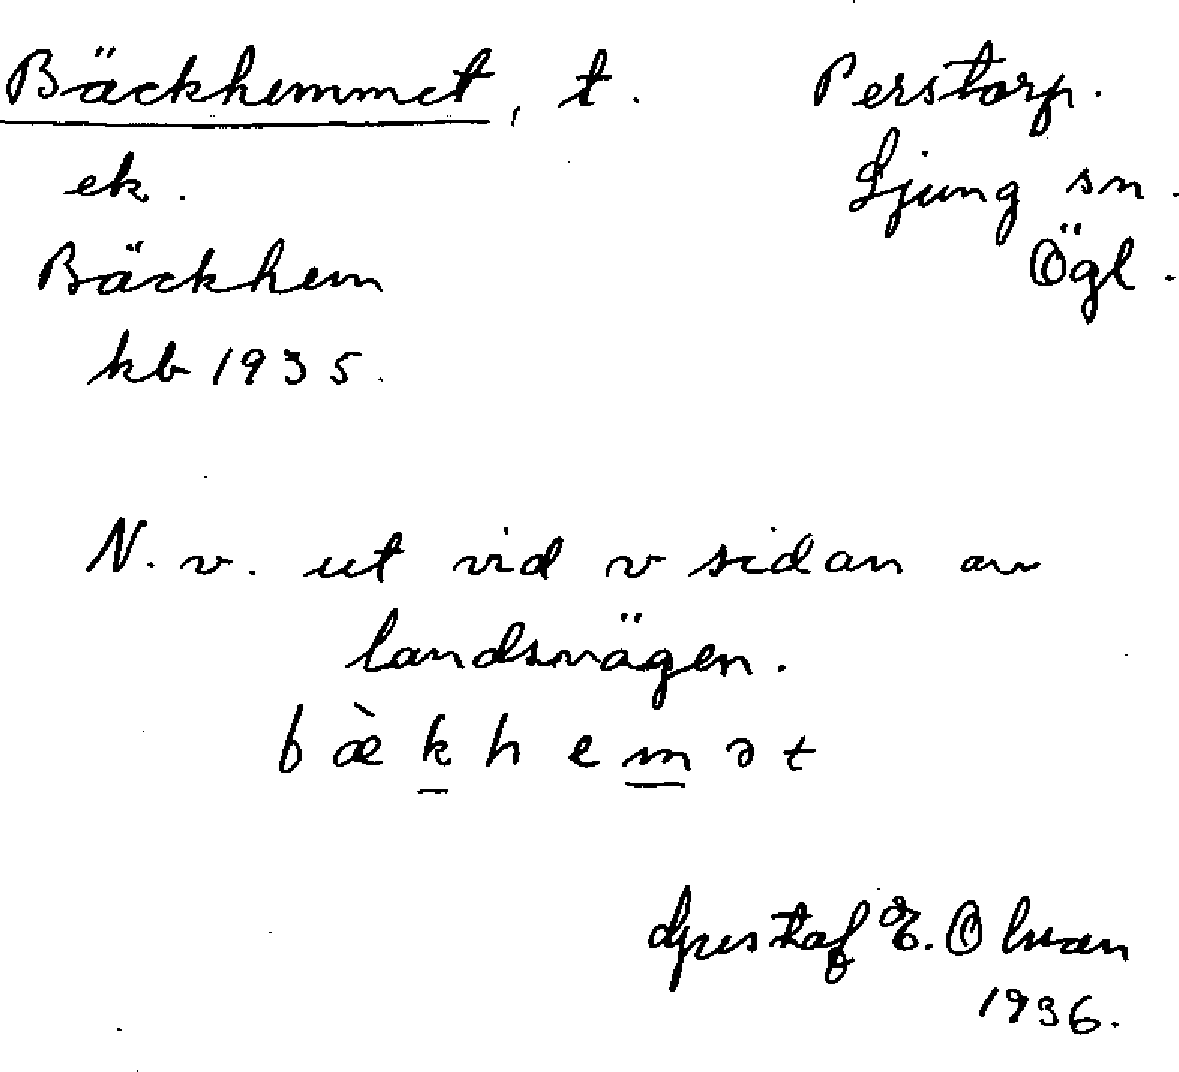 Bäckhemmet, t. Perstorp.
ek. Ljung sn.
Bäckhem Ögl.
kb 1935.
N. v. ut vid v sidan av
landsvägen.
b æ̀ k h e m ə t
Gustaf E. Olson
1936.